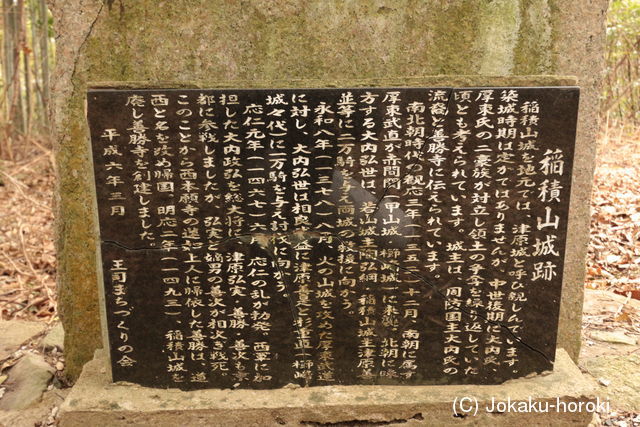 稲積山城跡
稲積山城を地元では、津原城と呼び親しんでいます。
築城時期は定かではありませんが、中世後期に大内氏と
厚東氏の二豪族が対立し領土の争奪を繰り返していた
頃とも考えられています。城主は、周防国主大内氏の
流裔と善勝寺に伝えられています。
南北朝時代の観応三年(一三五二)十二月、南朝に属す
厚東武直が赤間関(甲山城、櫛崎城)に来襲。北朝に味
方する大内弘世は、若山城主陶弘綱、稲積山城主津原善
並等に一万騎を与え両城の救援に向かう。
永和八年(一三七八)八月、火の山城を攻めた厚東武道
に対し、大内弘世は相良武益に津原善量と杉重直(櫛崎
城々代)に一万騎を与え討伐に向かう。
応仁元年(一四七七)六月、応仁の乱が勃発、西軍に加
担した大内政弘を総大将に、津原弘実、善勝、善次も京
都に参戦しましたが、弘実と嫡男の善次が相次ぎ戦死
このことから西本願寺の蓮如上人に帰依した善勝は、道
西と名を改め帰国、明応二年(一四九三)、稲積山城を
廃し善勝寺を創建しました。
平成六年三月
王司まちづくりの会
(C) Jokaku-horoki